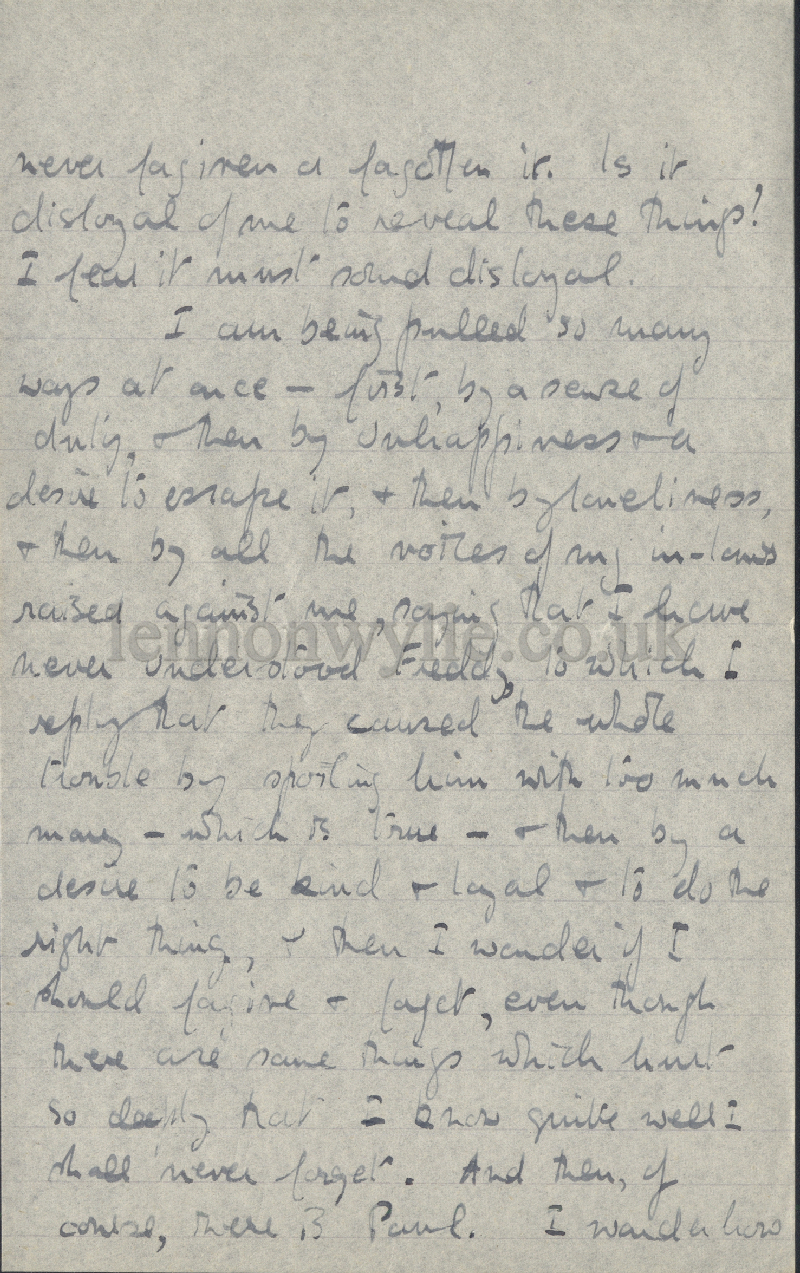 never forgiven or forgotten it. Is it
disloyal of me to reveal these things?
I fear it must sound disloyal.
I am being pulled so many
ways at once – first, by a sense of
duty, & then by unhappiness & a
desire to escape it, & then by loneliness,
& then by all the voices of my in-laws
raised against me, saying that I have
lennonwylie.co.uk
never understood Freddy, to which I
reply that they caused the whole
trouble by spoiling him with too much
money – which is true – & then by a
desire to be kind & loyal & to do the
right thing, & then I wonder if I
should forgive & forget, even though
there are some things which hurt
so deeply that I know quite well I
shall never forget. And then, of
course, there is Paul. I wonder how